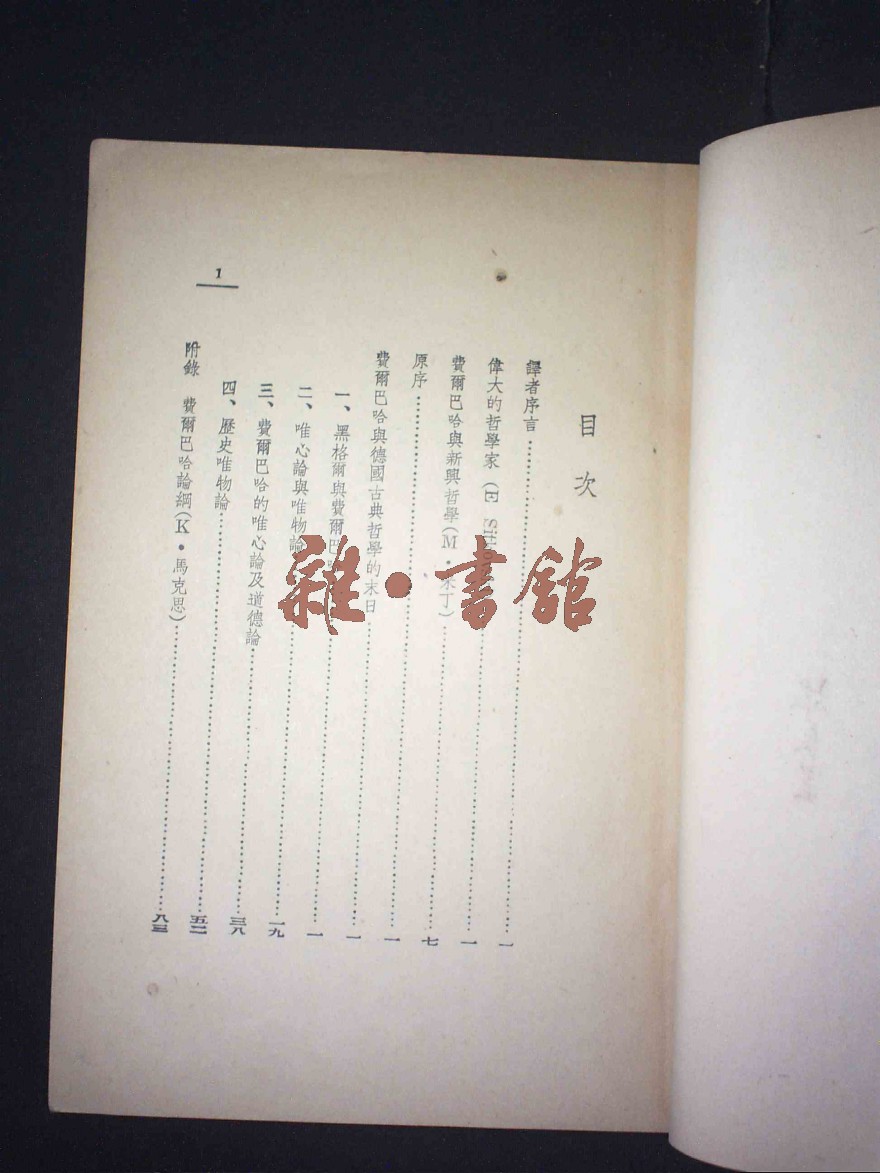 目次
譯者序言……一
偉大的哲學家(E……一
費爾巴哈與新興哲學(M 米丁)……七
原序……一
費爾巴哈與德國古典哲學的末日……一
一、黑格爾與費爾巴……一
二、唯心論與唯物論……一九
三、費爾巴哈的唯心論及道德論……三八
四、歷史唯物論……五二
附錄 費爾巴哈論綱(K·馬克思)……八三
1
雜·書館